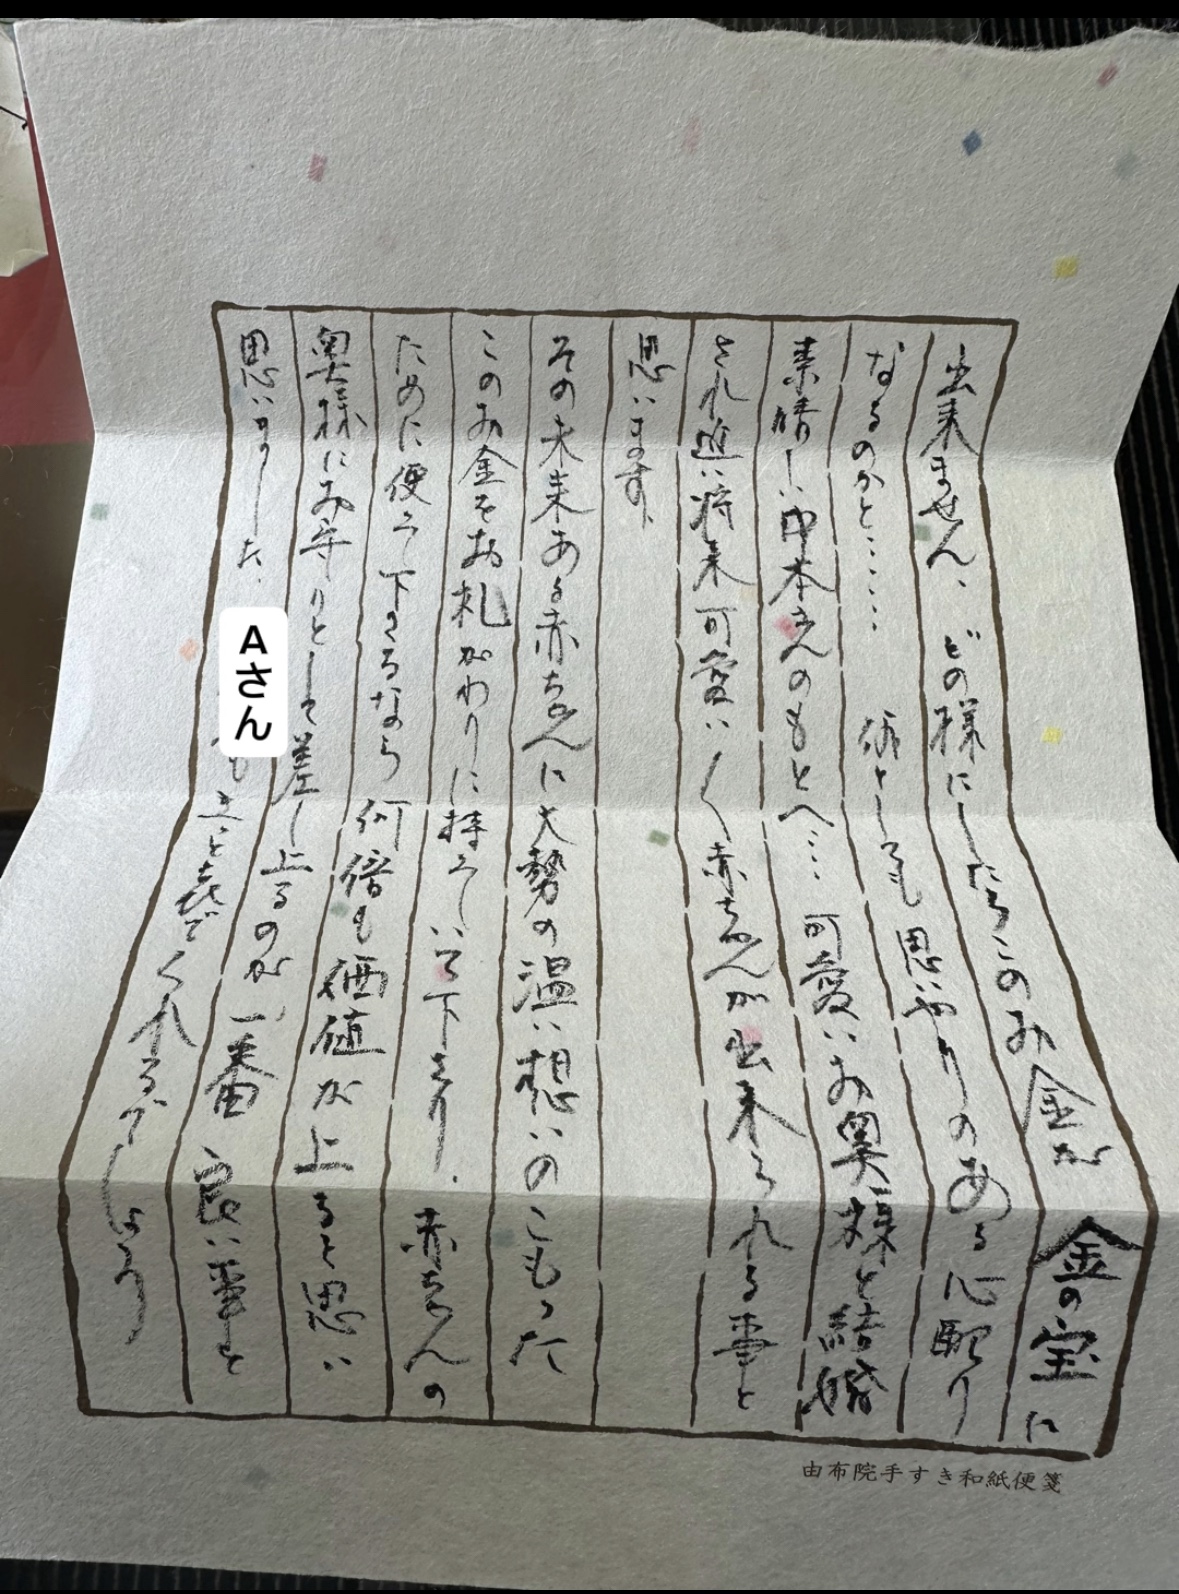 出来ません、どの様にしたらこのお金が金の宝に
なるのかと……何としても思いやりのある心配り
素晴しい中本さんのもとへ…可愛いお奥様と結婚
され近い将来可愛い〱赤ちゃんが出来られる事と
思います、
その未来ある赤ちゃんに大勢の温い想いのこもった
このお金をお札がわりに持っていて下さり、赤ちゃんの
ために使って下さるなら何倍も価値が上ると思い
奥様にお守りとして差し上るのが一番良い事と
思いました、
Aさん
も
喜でくれるでしょう
由布院手すき和紙便箋